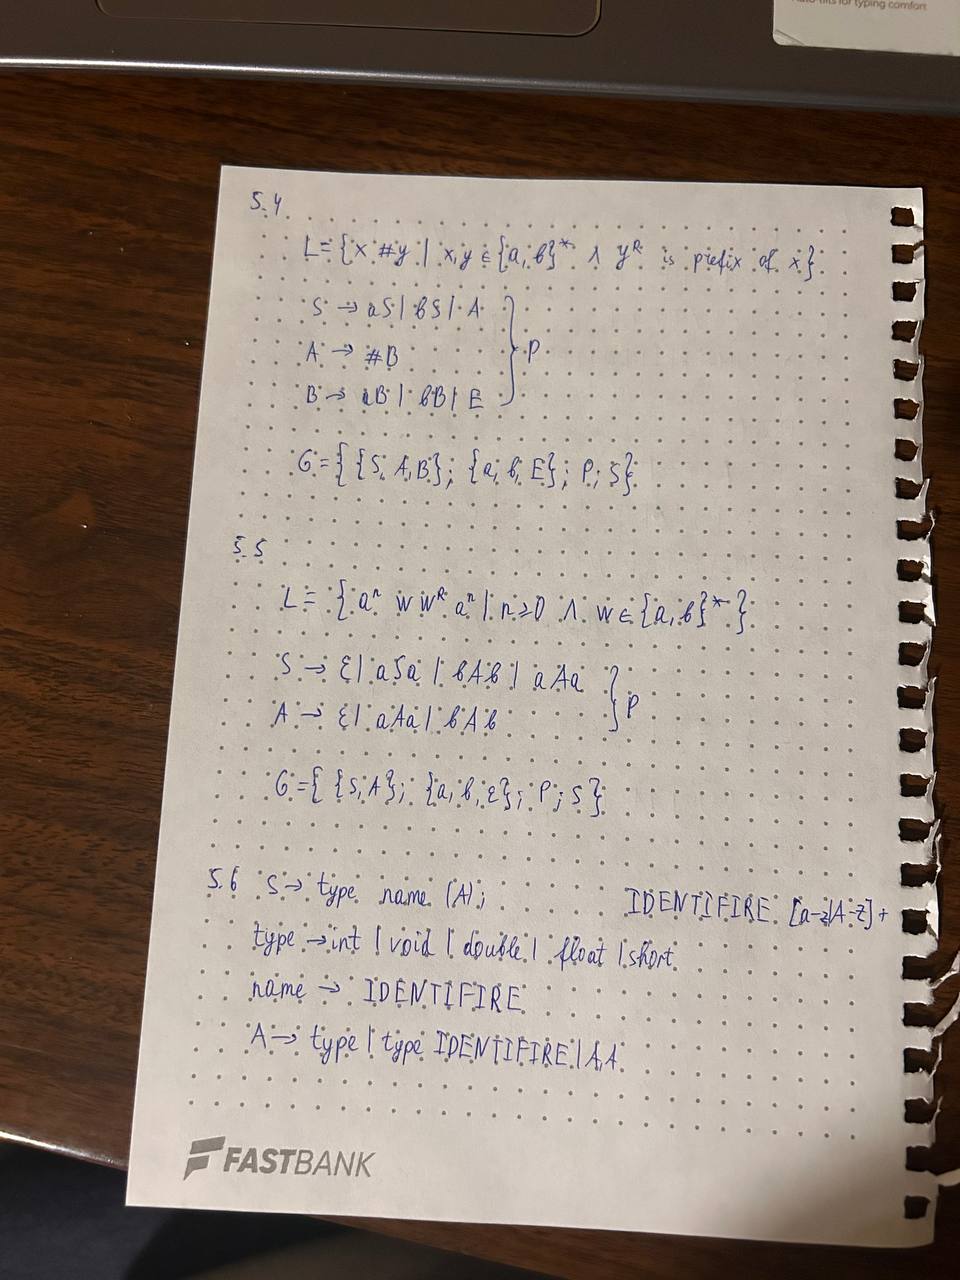 Auto-tilts for typing comfort
5.4.
L = {x #y | x, y ∈ {a, b}* ∧ y^R is prefix of x}
S → aS | bS | A
A → #B
B → aB | bB | E
} P
G = { {S, A, B}; {a, b, E}; P; S}
5.5
L = {a^n w w^R a^n | n ≥ 0 ∧ w ∈ {a, b}*}
S → ε | aSa | bAb | aAa
A → ε | aAa | bAb
} P
G = { {S, A}; {a, b, ε}; P; S}
5.6 S → type name (A);
IDENTIFIRE [a-z|A-Z]+
type → int | void | double | float | short
name → IDENTIFIRE
A → type | type IDENTIFIRE | A,A
FASTBANK